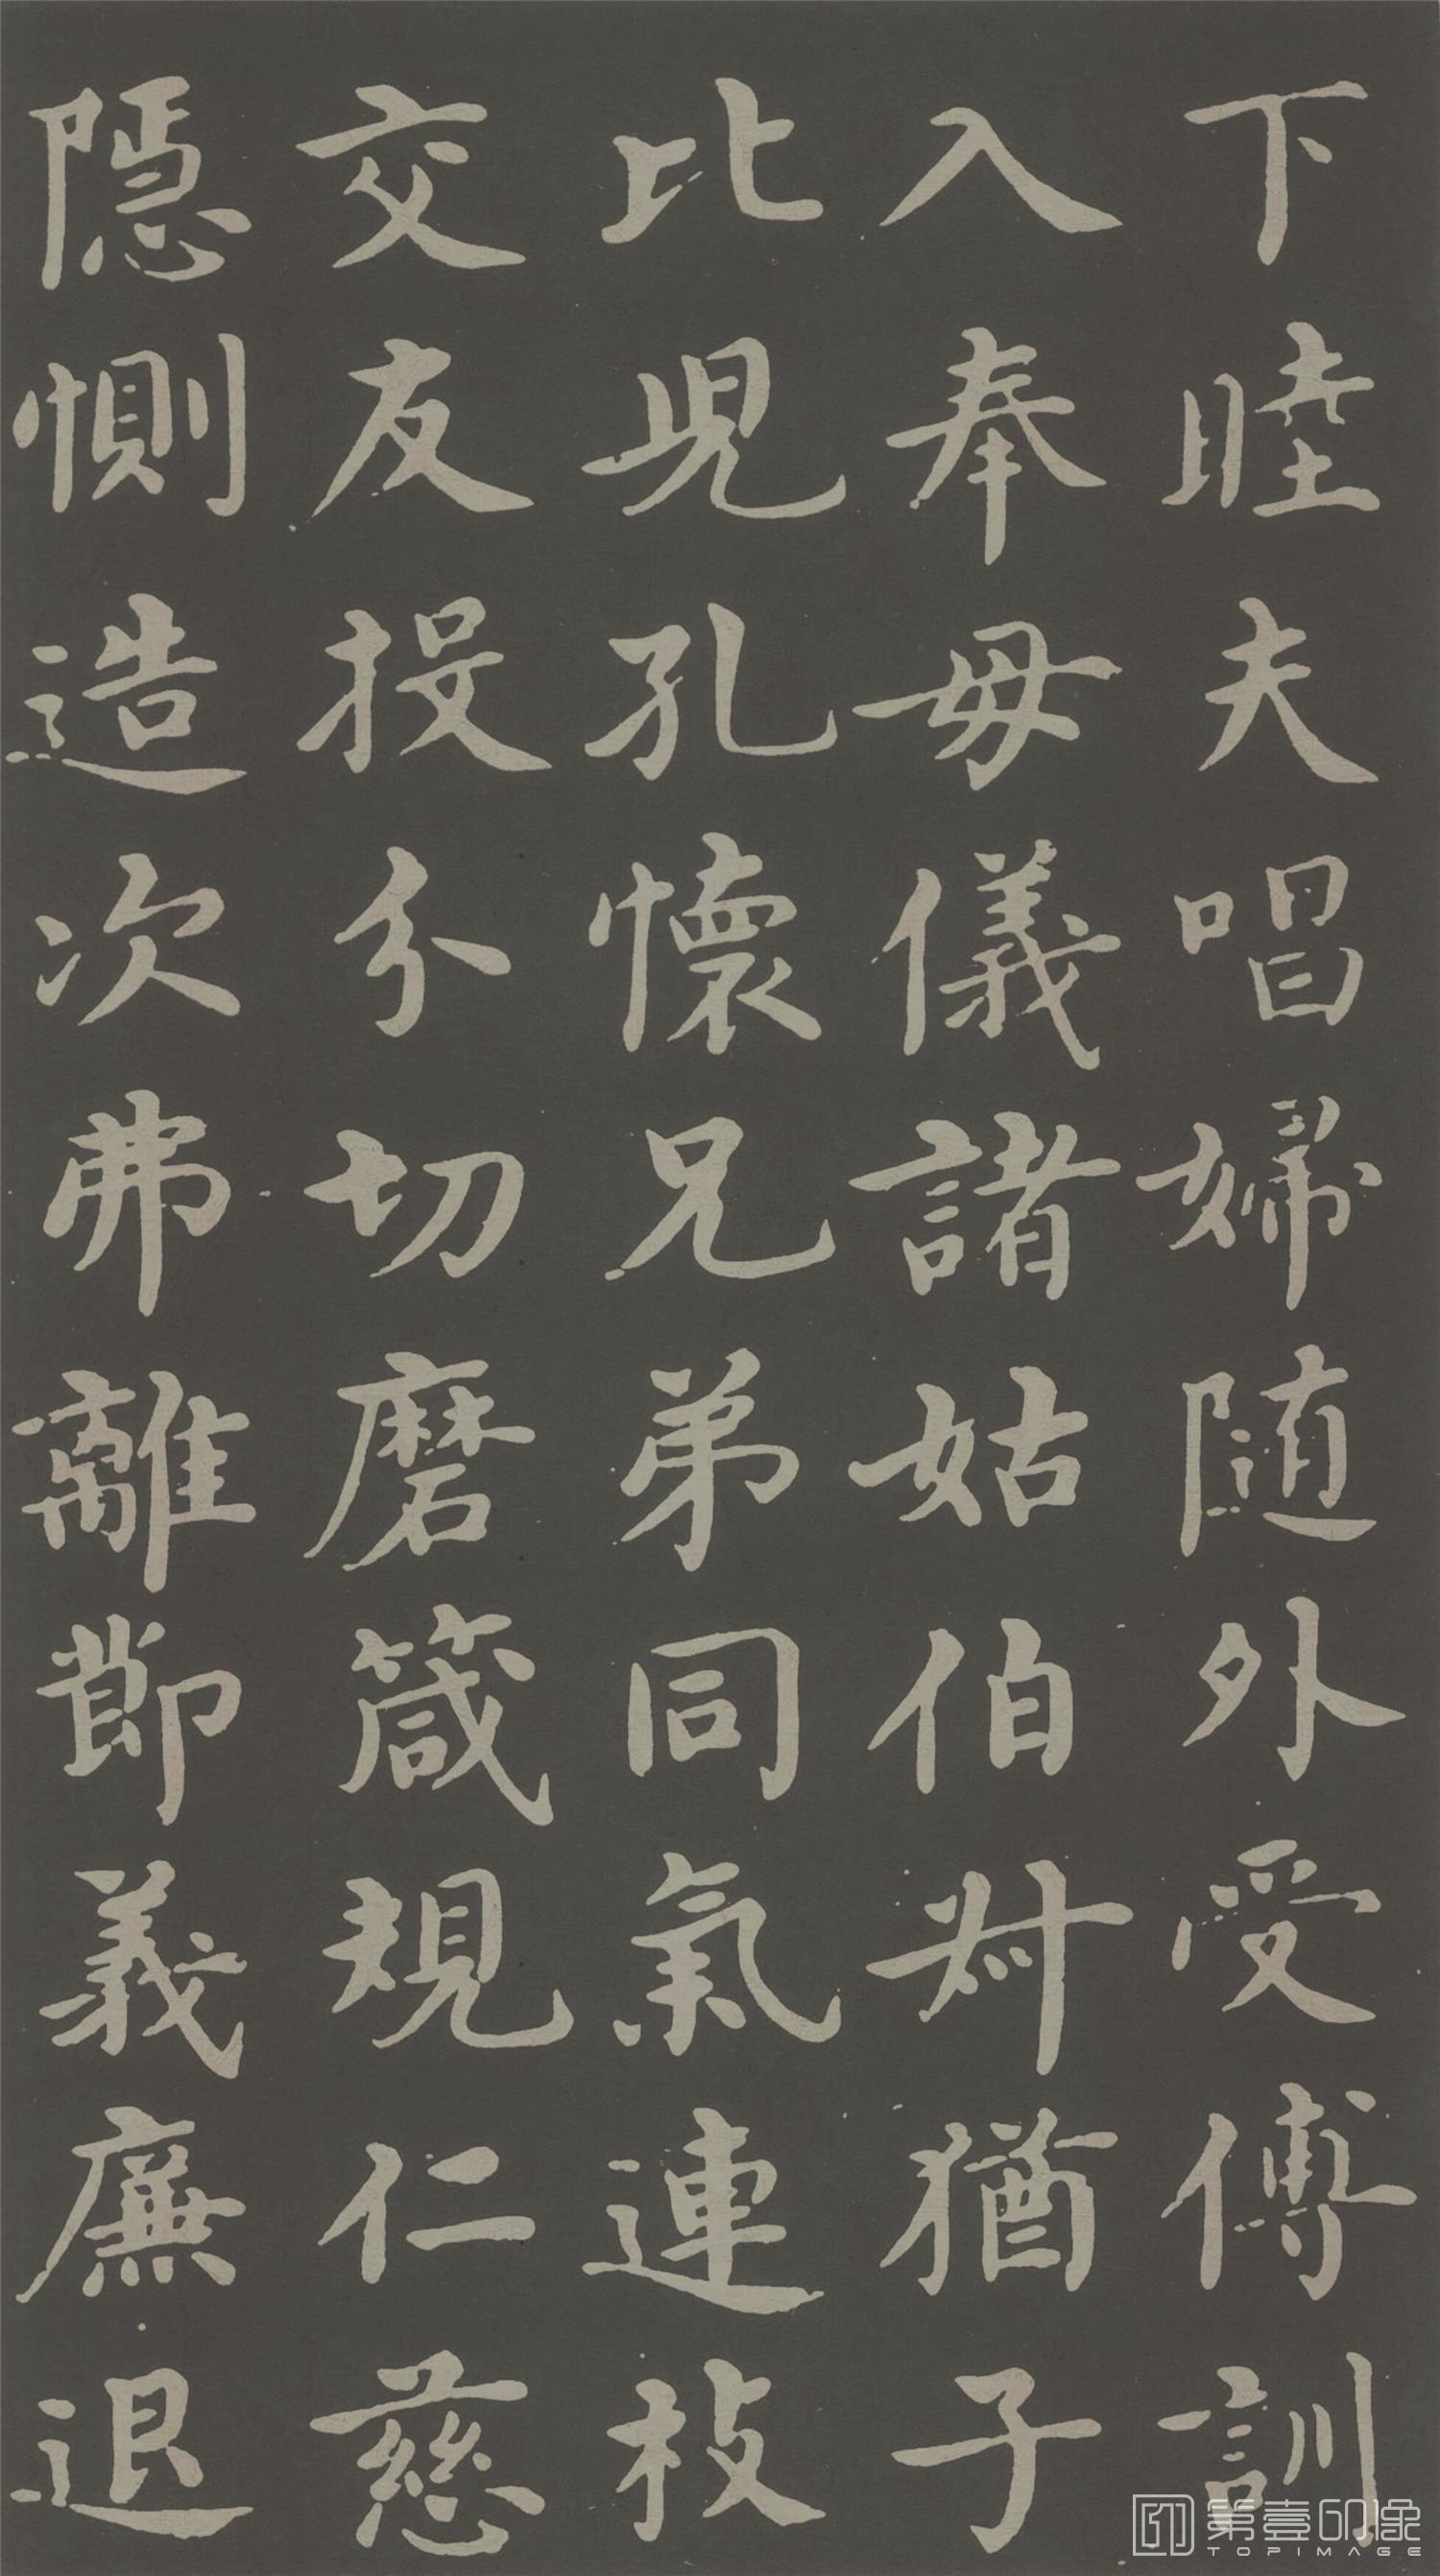 下睦夫唱婦随外受傅訓
入奉母儀諸姑伯叔猶子
比兒孔懷兄弟同氣連枝
交友投分切磨箴規仁慈
隱惻造次弗離節義廉退
第壹印像
TOPIMAGE